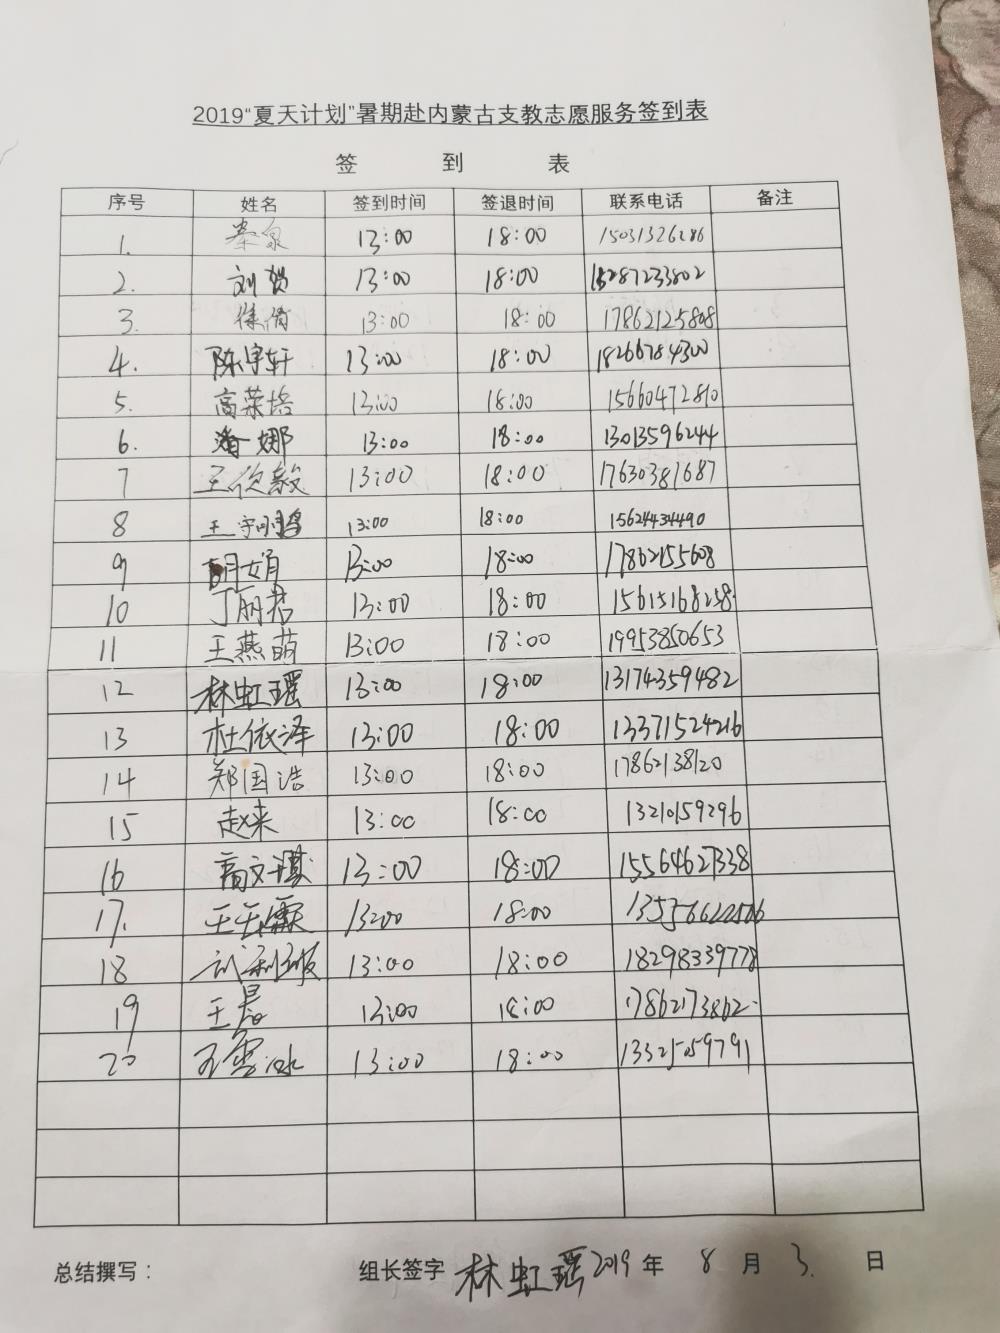 2019“夏天计划”暑期赴内蒙古支教志愿服务签到表
签 到 表
序号 姓名 签到时间 签退时间 联系电话 备注
1. 秦泉 13:00 18:00 15031326286
2. 刘贺 13:00 18:00 15287233802
3. 徐倩 13:00 18:00 17862125808
4. 陈宇轩 13:00 18:00 18266784300
5. 高荣培 13:00 18:00 15660472810
6. 潘娜 13:00 18:00 13013596244
7 王欣毅 13:00 18:00 17630381687
8 王宇鹏 13:00 18:00 15624434490
9 胡婧 13:00 18:00 17862155608
10 丁朋君 13:00 18:00 15615168258
11 王燕萌 13:00 18:00 19953850653
12 林虹瑶 13:00 18:00 13174359482
13 杜依泽 13:00 18:00 13371524216
14 郑国浩 13:00 18:00 17862138120
15 赵来 13:00 18:00 13210159296
16 高文琪 13:00 18:00 15564627338
17. 13:00 18:00
18 13:00 18:00 18298339778
19 王晨 13:00 18:00 17862173862
20 13:00 18:00 13325059791
总结撰写： 组长签字 林虹瑶 2019 年 8 月 3. 日